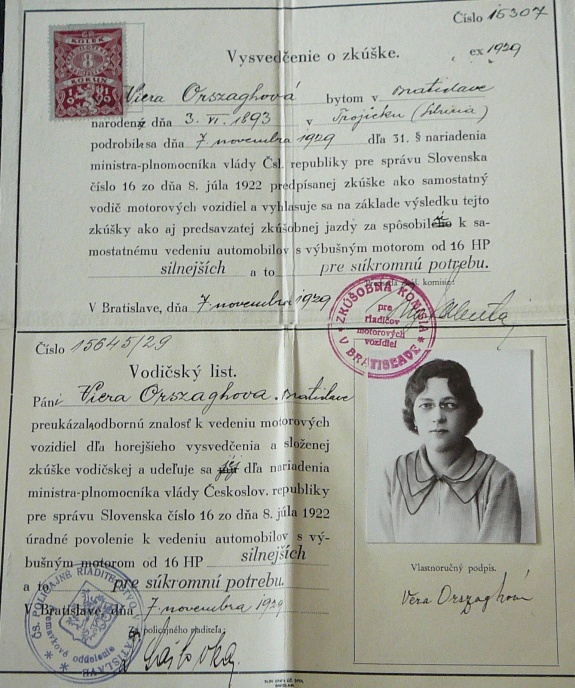 Číslo 15307
KOLEK
8
KORUN
19 19
Vysvedčenie o zkúške.
ex 1929
Viera Orszaghová bytom v Bratislave
narodená dňa 3. VI. 1893 v Trojicku (Sibiria)
podrobila sa dňa 7 novembra 1929 dľa 31. § nariadenia
ministra-plnomocníka vlády Čsl. republiky pre správu Slovenska
číslo 16 zo dňa 8. júla 1922 predpísanej zkúške ako samostatný
vodič motorových vozidiel a vyhlasuje sa na základe výsledku tejto
zkúšky ako aj predsavzatej zkúšobnej jazdy za spôsobilú k sa-
mostatnému vedeniu automobilov s výbušným motorom od 16 HP
silnejších a to pre súkromnú potrebu.
komisie:
V Bratislave, dňa 7 novembra 1929
ZKÚŠOBNÁ KOMISIA
pre
riadičov
motorových
vozidiel
V BRATISLAVE
Číslo 15645/29
Vodičský list.
Páni Viera Orszaghova. Bratislave
preukázala odbornú znalosť k vedeniu motorových
vozidiel dľa horejšieho vysvedčenia a složenej
zkúške vodičskej a udeľuje sa jej dľa nariadenia
ministra-plnomocníka vlády Českoslov. republiky
pre správu Slovenska číslo 16 zo dňa 8. júla 1922
úradné povolenie k vedeniu automobilov s vý-
bušným motorom od 16 HP silnejších
a to pre súkromnú potrebu.
V Bratislave, dňa 7 novembra 1929
Za policajného riaditeľa:
ČS. POLICAJNÉ RIADITEĽSTVO V BRATISLAVE
oddelenie
Vlastnoručný podpis.
Viera Orszaghová